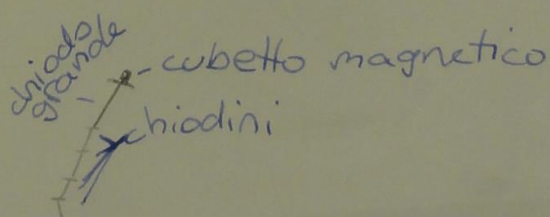 chiodo
grande
- cubetto magnetico
chiodini